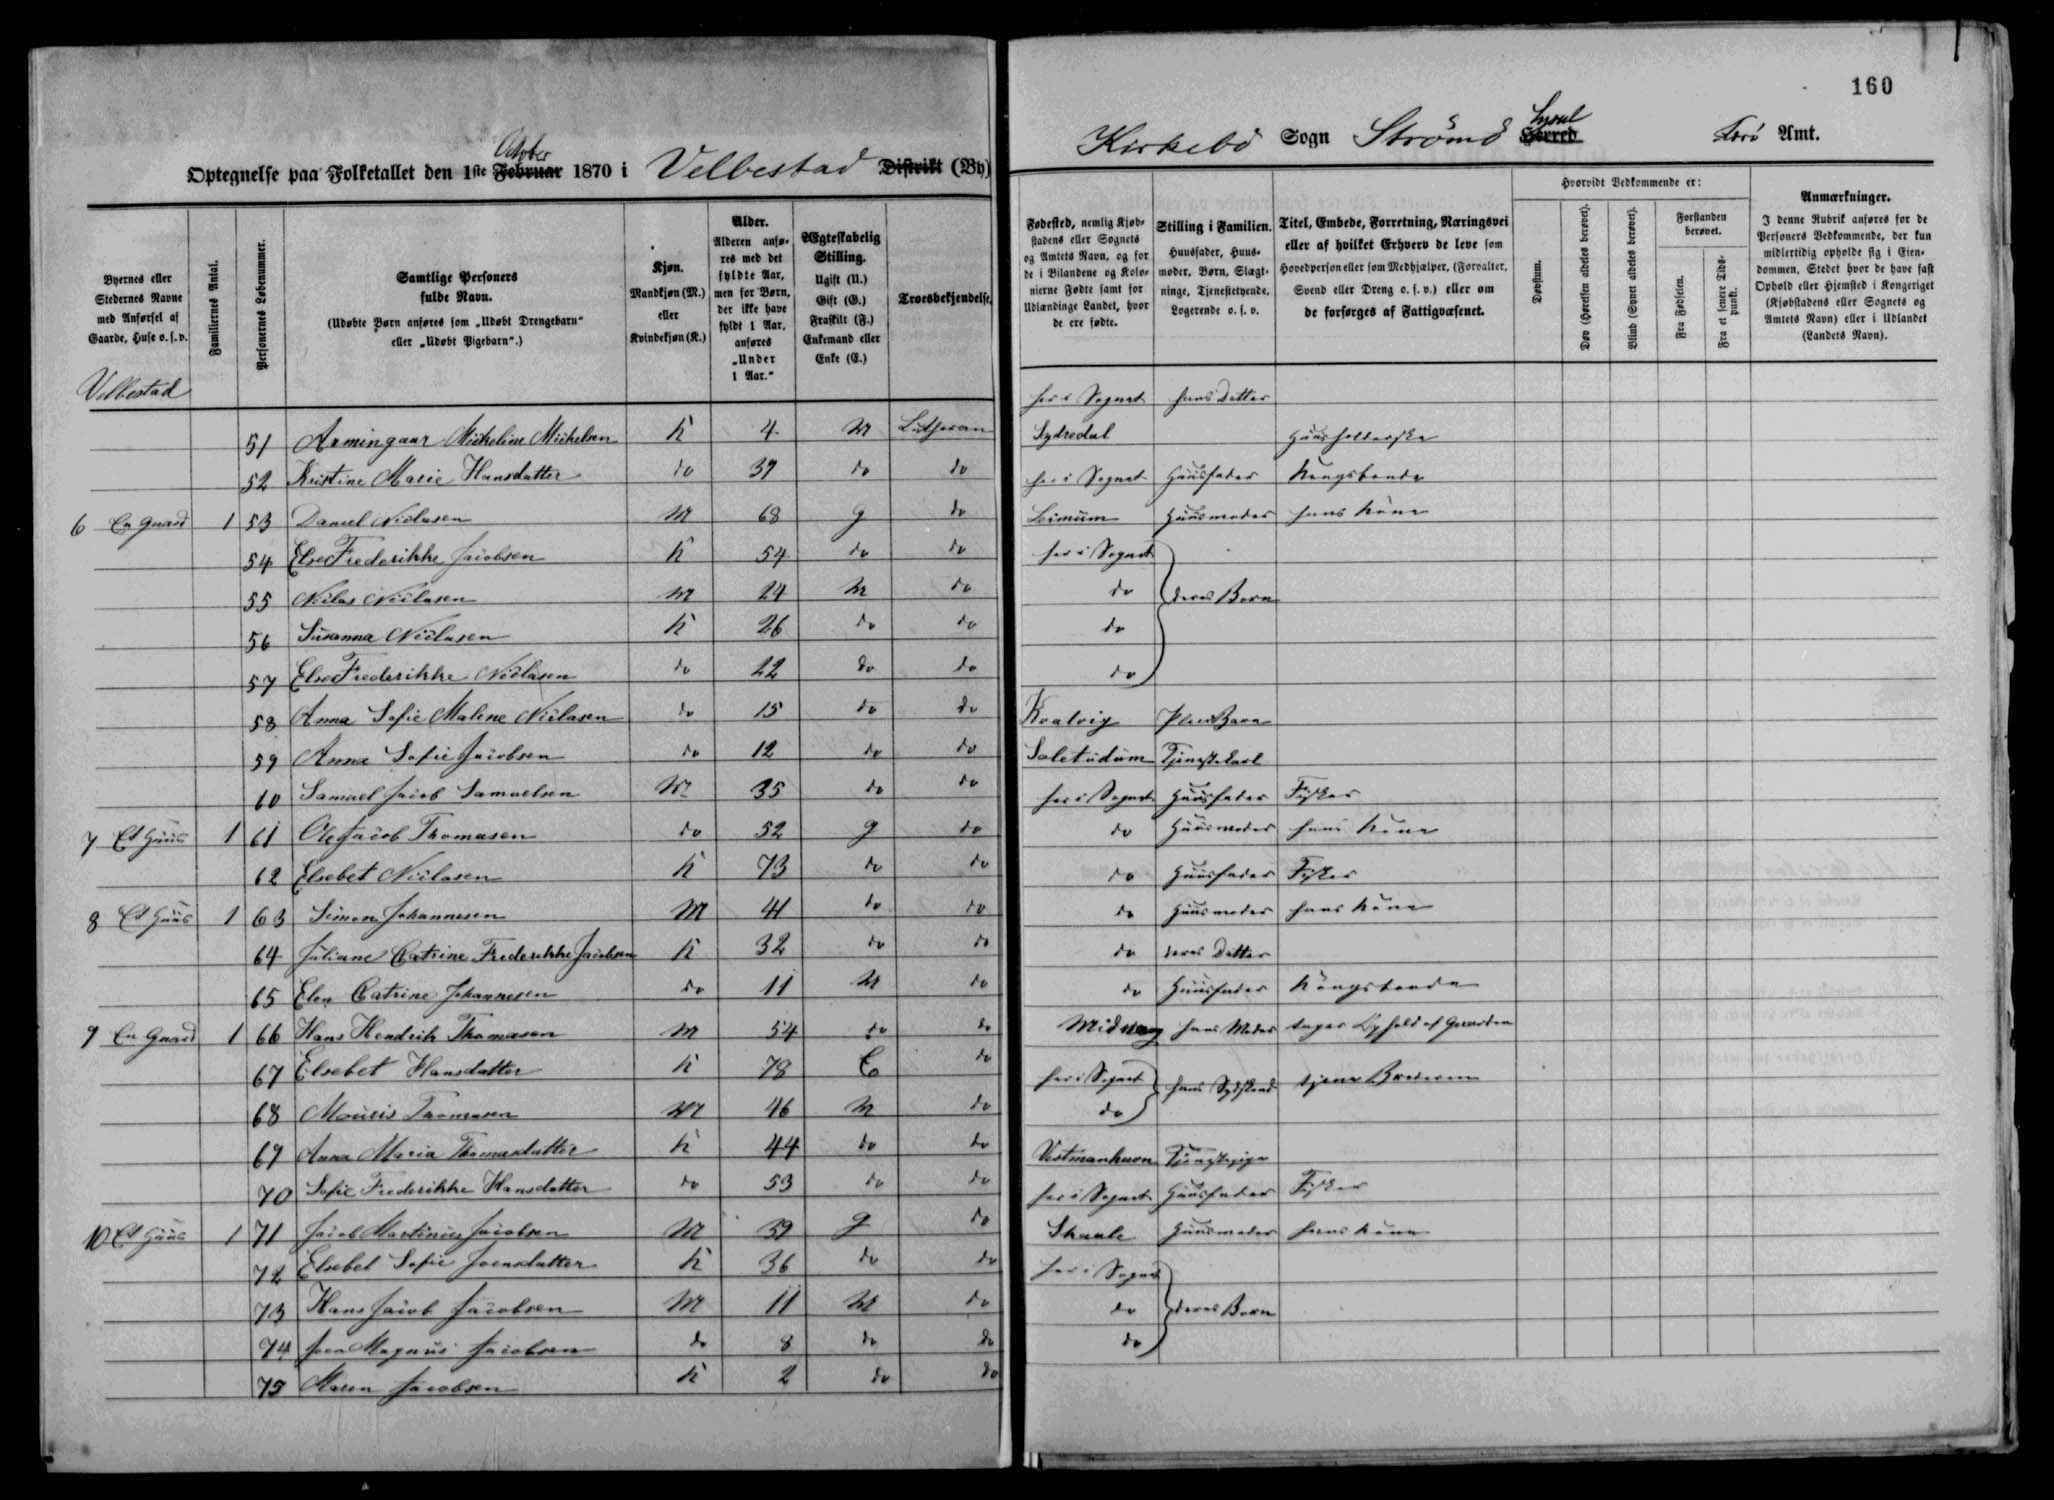 160
Optegnelse paa Folketallet den 1ste October Februar 1870 i Velbestad Distrikt (By)
Kirkebö Sogn Strömö Syssel Herred Færö Amt.
Byernes eller Stedernes Navne med Anførsel af Gaarde, Huse o. s. v.
Familiernes Antal.
Personernes Løbenummer.
Samtlige Personers fulde Navn.
(Udøbte Børn anføres som „Udøbt Drengebarn“ eller „Udøbt Pigebarn“.)
Kjøn.
Mandkjøn (M.) eller Kvindekjøn (K.)
Alder.
Alderen anføres med det fyldte Aar, men for Børn, der ikke have fyldt 1 Aar, anføres „Under 1 Aar.“
Ægteskabelig Stilling.
Ugift (U.) Gift (G.) Fraskilt (F.) Enkemand eller Enke (E.)
Troesbekjendelse.
Fødested, nemlig Kjøbstadens eller Sognets og Amtets Navn, og for de i Bilandene og Kolonierne Fødte samt for Udlændinge Landet, hvor de ere fødte.
Stilling i Familien.
Huusfader, Huusmoder, Børn, Slægtninge, Tjenestetyende, Logerende o. s. v.
Titel, Embede, Forretning, Næringsvei eller af hvilket Erhverv de leve som Hovedperson eller som Medhjælper, (Forvalter, Svend eller Dreng o. s. v.) eller om de forsørges af Fattigvæsenet.
Hvorvidt Vedkommende er:
Døvstum.
Døv (Hørelsen aldeles berøvet).
Blind (Synet aldeles berøvet).
Forstanden berøvet.
Fra Fødselen.
Fra et senere Tidspunkt.
Anmærkninger.
I denne Rubrik anføres for de Personers Vedkommende, der kun midlertidig opholde sig i Eiendommen, Stedet hvor de have fast Ophold eller Hjemsted i Kongeriget (Kjøbstadens eller Sognets og Amtets Navn) eller i Udlandet (Landets Navn).
Velbestad
51 Armingaar Micheline Michelsen K 4 U Lutheran her i Sognet hans Datter
52 Kristine Marie Hansdatter do 37 do do Sydredal Huusholderske
6 En Gaard 1 53 Daniel Niclasen M 68 g do her i Sognet Huusfader Kongsbonde
54 Else Frederikke Jacobsen K 54 do do Leimum Huusmoder hans Kone
55 Niclas Niclasen M 24 U do her i Sognet
56 Susanna Niclasen K 26 do do do deres Børn
57 Else Frederikke Niclasen do 22 do do do
58 Anna Sofie Malene Niclasen do 15 do do do
59 Anna Sofie Jacobsen do 12 do do Kvalvig Pleiebarn
60 Samuel Jacob Samuelsen M 35 do do Saletudum Tjenestekarl
7 Et Huus 1 61 Ole Jacob Thomasen do 52 g do her i Sognet Huusfader Fisker
62 Elsebet Niclasen K 73 do do do Huusmoder hans Kone
8 Et Huus 1 63 Simon Johannesen M 41 do do do Huusfader Fisker
64 Juliane Catrine Frederikke Jacobsen K 32 do do do Huusmoder hans Kone
65 Elen Catrine Johannesen do 11 U do do deres Datter
9 En Gaard 1 66 Hans Hendrik Thomasen M 54 do do do Huusfader Kongsbonde
67 Elsebet Hansdatter K 78 E do Midvaag hans Moder tager Ophold af Gaarden
68 Mouris Thomasen M 46 U do her i Sognet hans Sødskend tjener Broderen
69 Anna Maria Thomasdatter K 44 do do do
70 Sofie Frederikke Hansdatter do 53 do do Vestmanhavn Tjenestepige
10 Et Huus 1 71 Jacob Martinus Jacobsen M 39 g do her i Sognet Huusfader Fisker
72 Elsebet Sofie Joensdatter K 36 do do Skaale Huusmoder hans Kone
73 Hans Jacob Jacobsen M 11 U do her i Sognet
74 Joen Magnus Jacobsen do 8 do do do deres Børn
75 Maren Jacobsen K 2 do do do